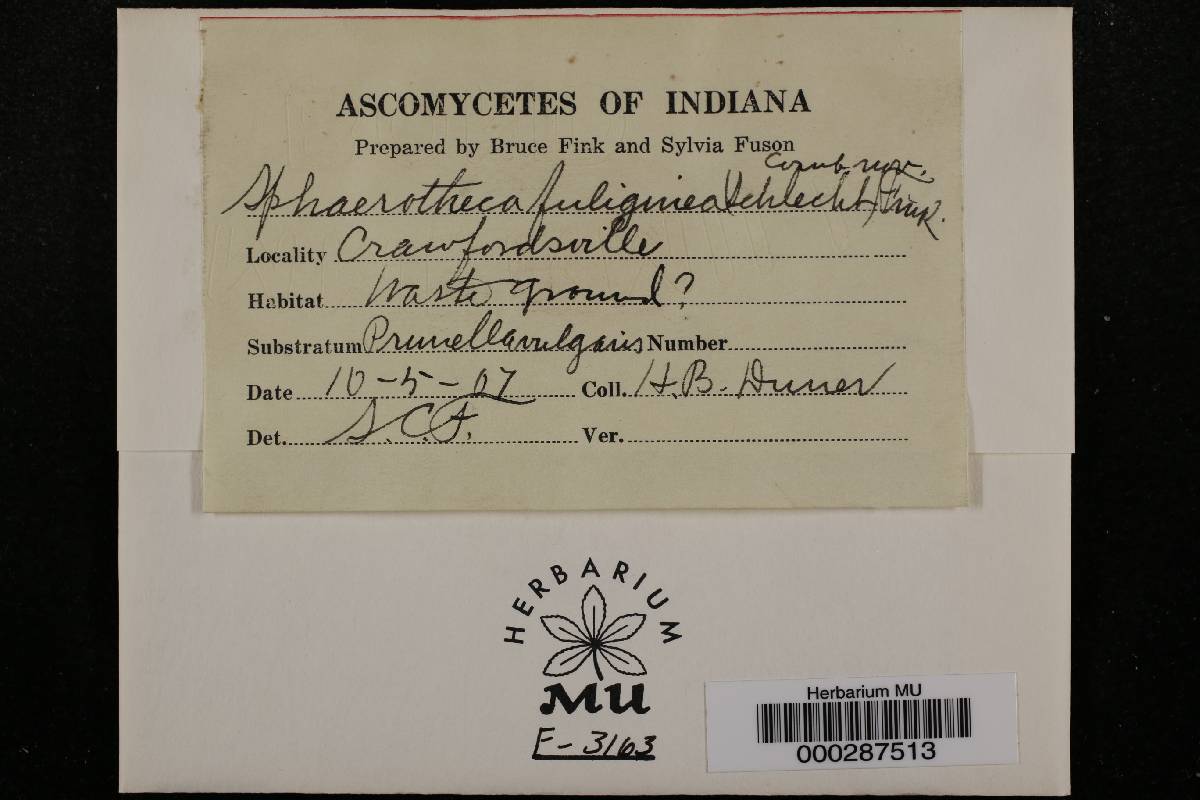 ASCOMYCETES OF INDIANA
Prepared by Bruce Fink and Sylvia Fuson
Comb. nov.
Sphaerotheca fuliginea (Schlecht) Fink.
Locality Crawfordsville
Habitat Waste ground?
Substratum Prunella vulgaris Number
Date 10-5-07 Coll. H.B.
Det. S.C.F. Ver.
HERBARIUM
MU
F-3163
Herbarium MU
000287513